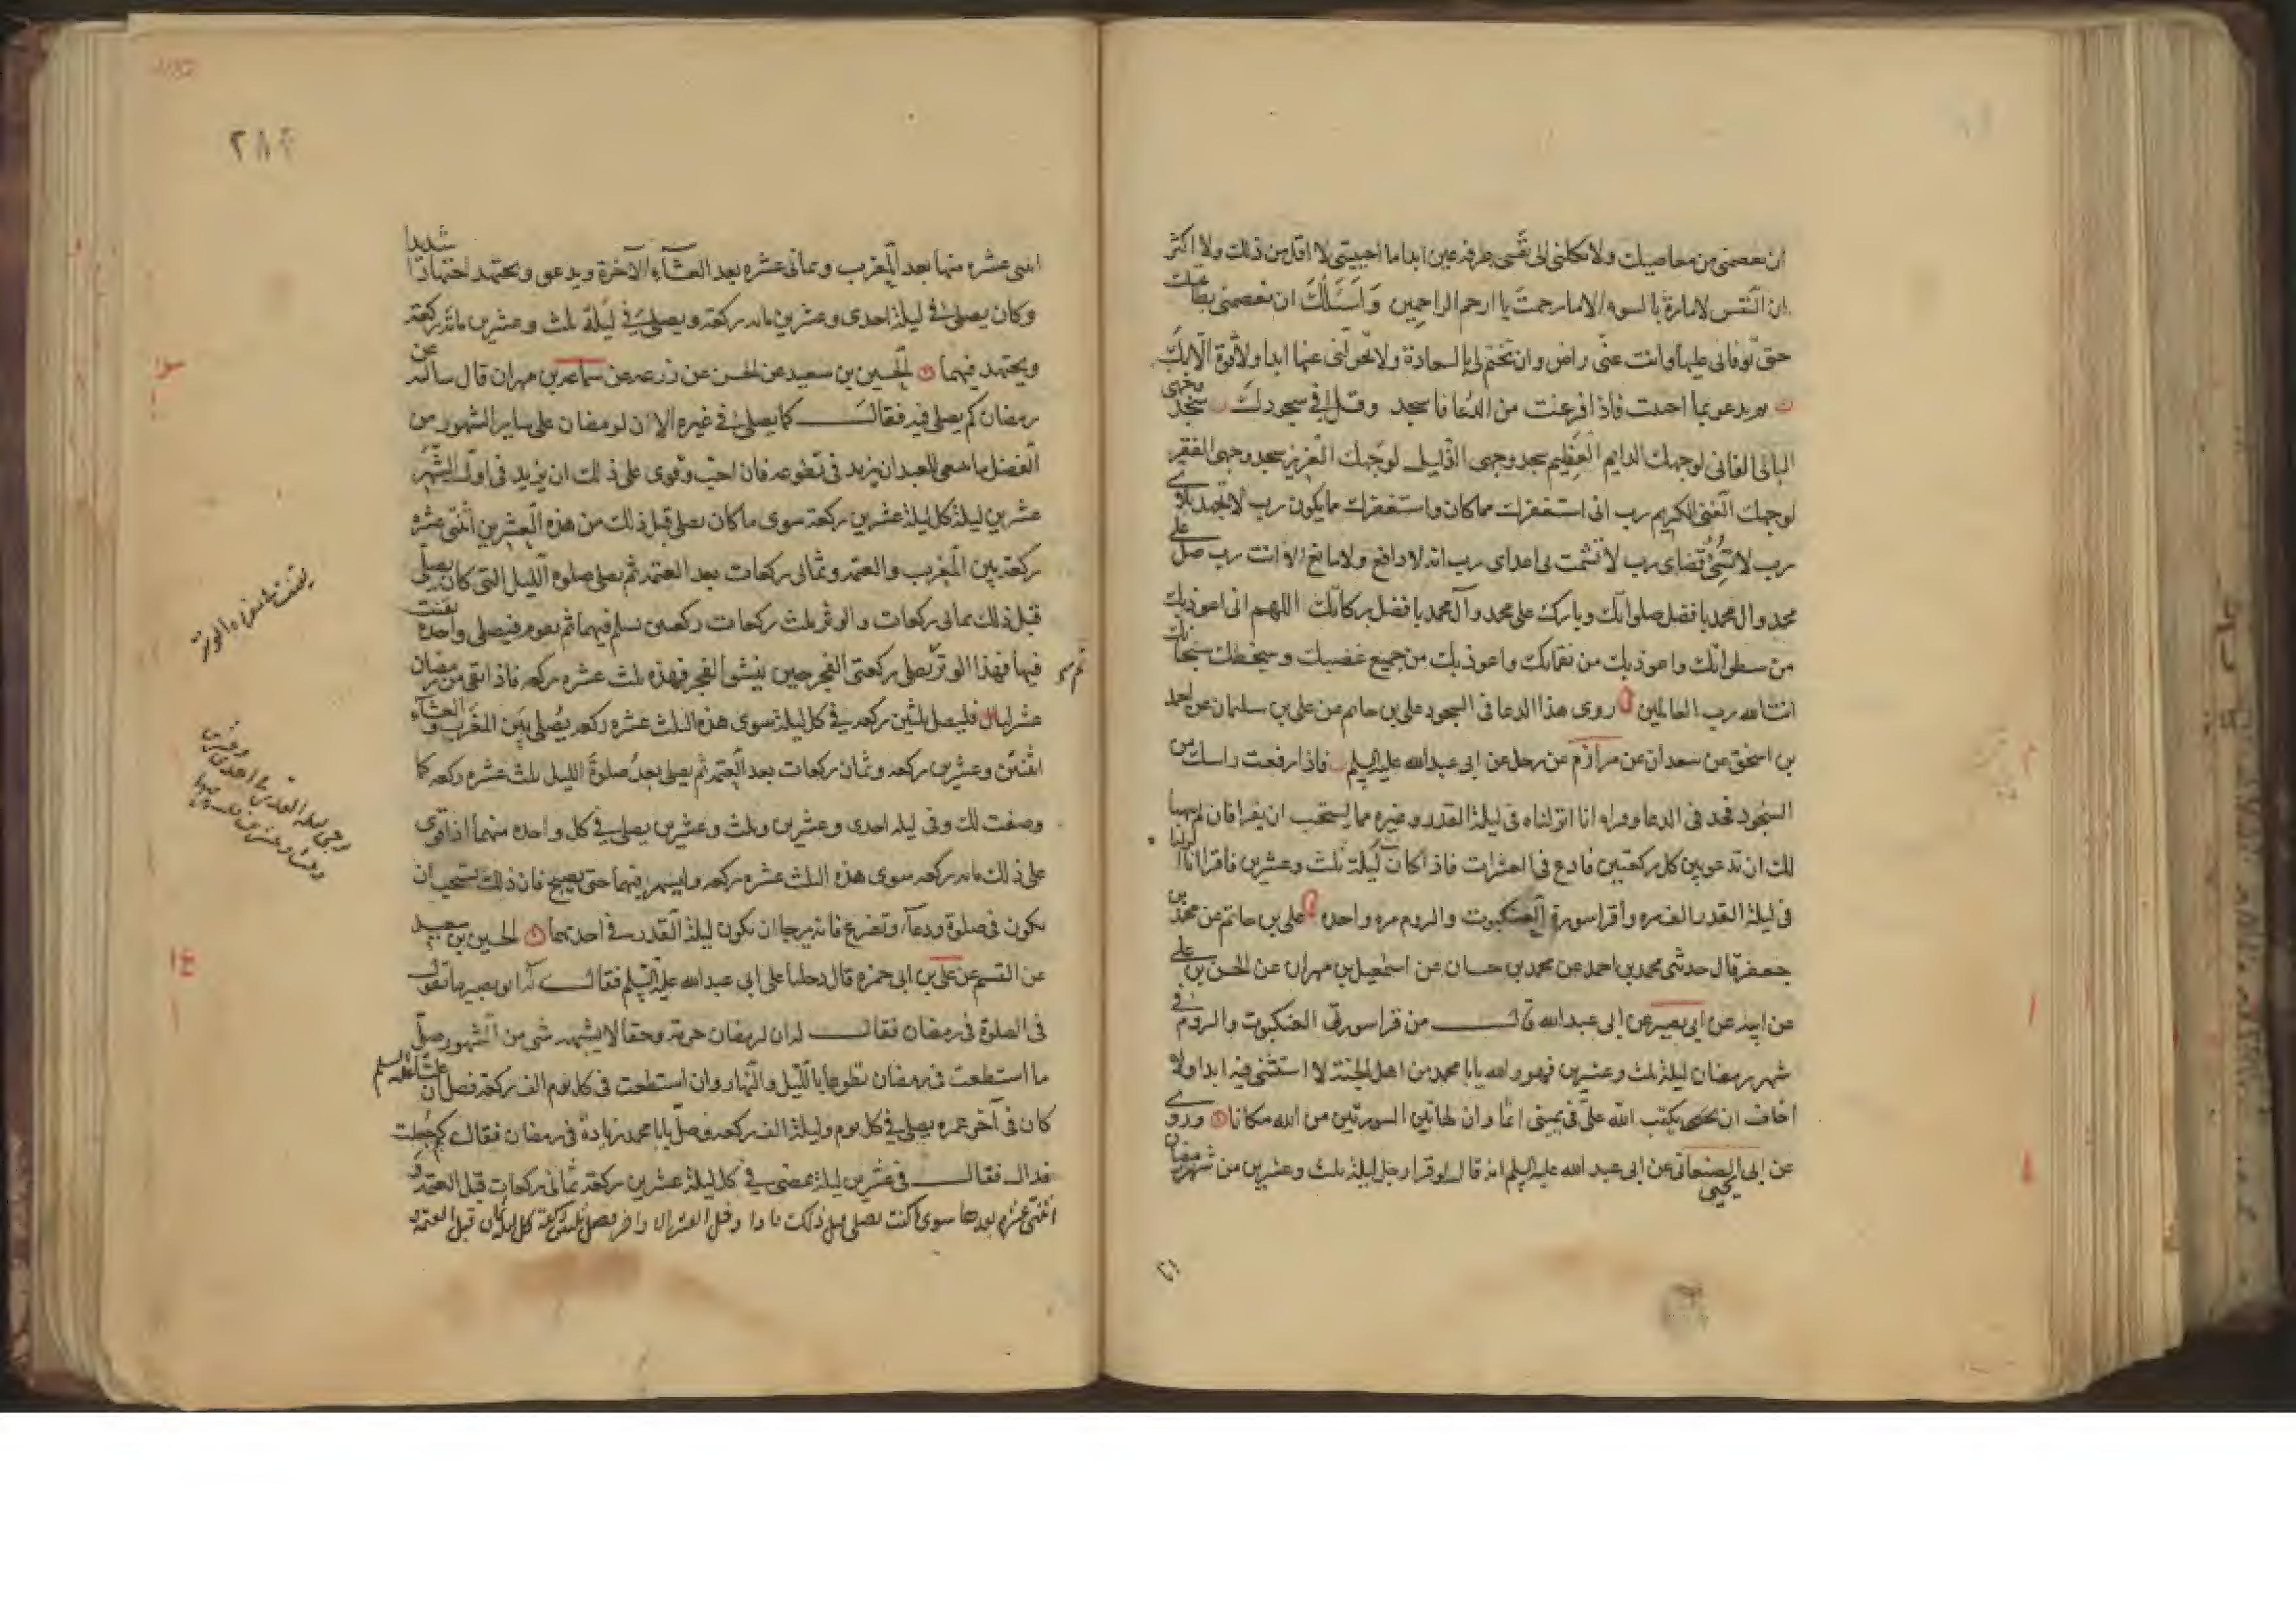 ان تعصمنى من معاصيك ولا تكلنى الى نفسى طرفة عين ابدا ما احييتنى لا اقل من ذلك ولا اكثر
ان النفس لامارة بالسوء الا ما رحمت يا ارحم الراحمين وَاَسْئَلُكَ ان تعصمنى بطاعتك
حتى توفانى عليها وانت عنى راض وان تختم لى بالسعادة ولا تحولنى عنها ابدا ولا قوة الا بك
ثم تدعو بما احببت فاذا فرغت من الدعا فاسجد وقل فى سجودك سجد وجهى
البالى الفانى لوجهك الدايم العظيم سجد وجهى الذليل لوجهك العزيز سجد وجهى الفقير
لوجهك الغنى الكريم رب انى استغفرك مما كان واستغفرك مما يكون رب لا تجهد بلاى
رب لا تسئ قضاى رب لا تشمت بى اعداى رب انه لا دافع ولا مانع الا انت رب صل على
محمد وال محمد بافضل صلواتك وبارك على محمد وآل محمد بافضل بركاتك اللهم انى اعوذ بك
من سطواتك واعوذ بك من نقماتك واعوذ بك من جميع غضبك وسخطك سبحانك
انت الله رب العالمين روى هذا الدعا فى السجود على بن حاتم عن على بن سليمان عن احمد
بن اسحق عن سعدان عن مرازم عن رجل عن ابى عبدالله عليه السلم فاذا رفعت راسك من
السجود فخد فى الدعا وقراه انا انزلناه فى ليلة القدر وغيره مما يستحب ان يقرا فان لم يتهيا
لك ان تدعو بين كل ركعتين فادع فى العشرات فاذا كان ليلة ثلث وعشرين فاقرا انا انزلناه
فى ليلة القدر الف مره واقرا سورة العنكبوت والروم مره واحده على بن حاتم عن محمد بن
جعفر قال حدثنى محمد بن احمد عن محمد بن حسان عن اسمعيل بن مهران عن الحسن بن على
عن ابيه عن ابى بصير عن ابى عبدالله قال من قرا سورتى العنكبوت والروم فى
شهر رمضان ليلة ثلث وعشرين فهو والله يا با محمد من اهل الجنة لا استثنى فيه ابدا ولا
اخاف ان يكتب الله على فى يمينى اثما وان لهاتين السورتين من الله مكانا وروى
عن ابى يحيى الصنعانى عن ابى عبد الله عليه السلم انه قال لو قرا رجل ليلة ثلث وعشرين من شهر رمضان
انا
٢٨٤
اثنى عشره منها بعد المغرب وثمانى عشره بعد العشآء الآخرة ويدعو ويجتهد اجتهادا شديدا
وكان يصلى فى ليلة احدى وعشرين مائه ركعة ويصلى فى ليلة ثلث وعشرين مائة ركعة
ويجتهد فيهما الحسين بن سعيد عن الحسن عن زرعه عن سماعه بن مهران قال سالته عن
رمضان كم يصلى فيه فقال كما يصلى فى غيره الا ان لرمضان على ساير الشهور من
الفضل ما ينبغى للعبد ان يزيد فى تطوعه فان احب وقوى على ذلك ان يزيد فى اول الشهر
عشرين ليلة كل ليلة عشرين ركعة سوى ما كان يصلى قبل ذلك من هذه العشرين اثنتى عشره
ركعة بين المغرب والعتمة وثمانى ركعات بعد العتمة ثم يصلى صلوه الليل التى كان يصلى
قبل ذلك ثمانى ركعات والوتر ثلث ركعات ركعتين يسلم فيهما ثم يقوم فيصلى واحدة يقنت
فيها فهذا الوتر ثم يصلى ركعتى الفجر حين ينشق الفجر فهذه ثلث عشره ركعه فاذا بقى من رمضان
عشر ليال فليصل ثلثين ركعه فى كل ليلة سوى هذه الثلث عشره ركعه يصلى بين المغرب والعشآء
اثنتين وعشرين ركعه وثمان ركعات بعد العتمه ثم يصلى بعد صلوة الليل ثلث عشره ركعه كما
وصفت لك وفى ليلة احدى وعشرين وثلث وعشرين يصلى فى كل واحده منهما اذا قوى
على ذلك مائه ركعه سوى هذه الثلث عشره ركعه وليسهر فيهما حتى يصبح فان ذلك يستحب ان
يكون فى صلوة ودعآء وتضرع فانه يرجا ان يكون ليلة القدر فى احديهما الحسين بن سعيد
عن القسم عن على بن ابى حمزه قال دخلنا على ابى عبدالله عليه السلم فقال له ابو بصير ما تقول
فى الصلوة فى رمضان فقال له ان لرمضان حرمة وحقا لا يشبهه شى من الشهور صل
ما استطعت فى رمضان تطوعا بالليل والنهار وان استطعت فى كل يوم الف ركعة فصل ان عليا عليه السلم
كان فى آخر عمره يصلى فى كل يوم وليلة الف ركعه فصل يا با محمد زيادة فى رمضان فقال كم جعلت
فداك فقال فى عشرين ليلة تمضى فى كل ليلة عشرين ركعة ثمانى ركعات قبل العتمه و
اثنتى عشره بعدها سوى ما كنت تصلى قبل ذلك فاذا دخل العشر الاواخر فصل ثلثين ركعة كل ليلة ثمان قبل العتمه